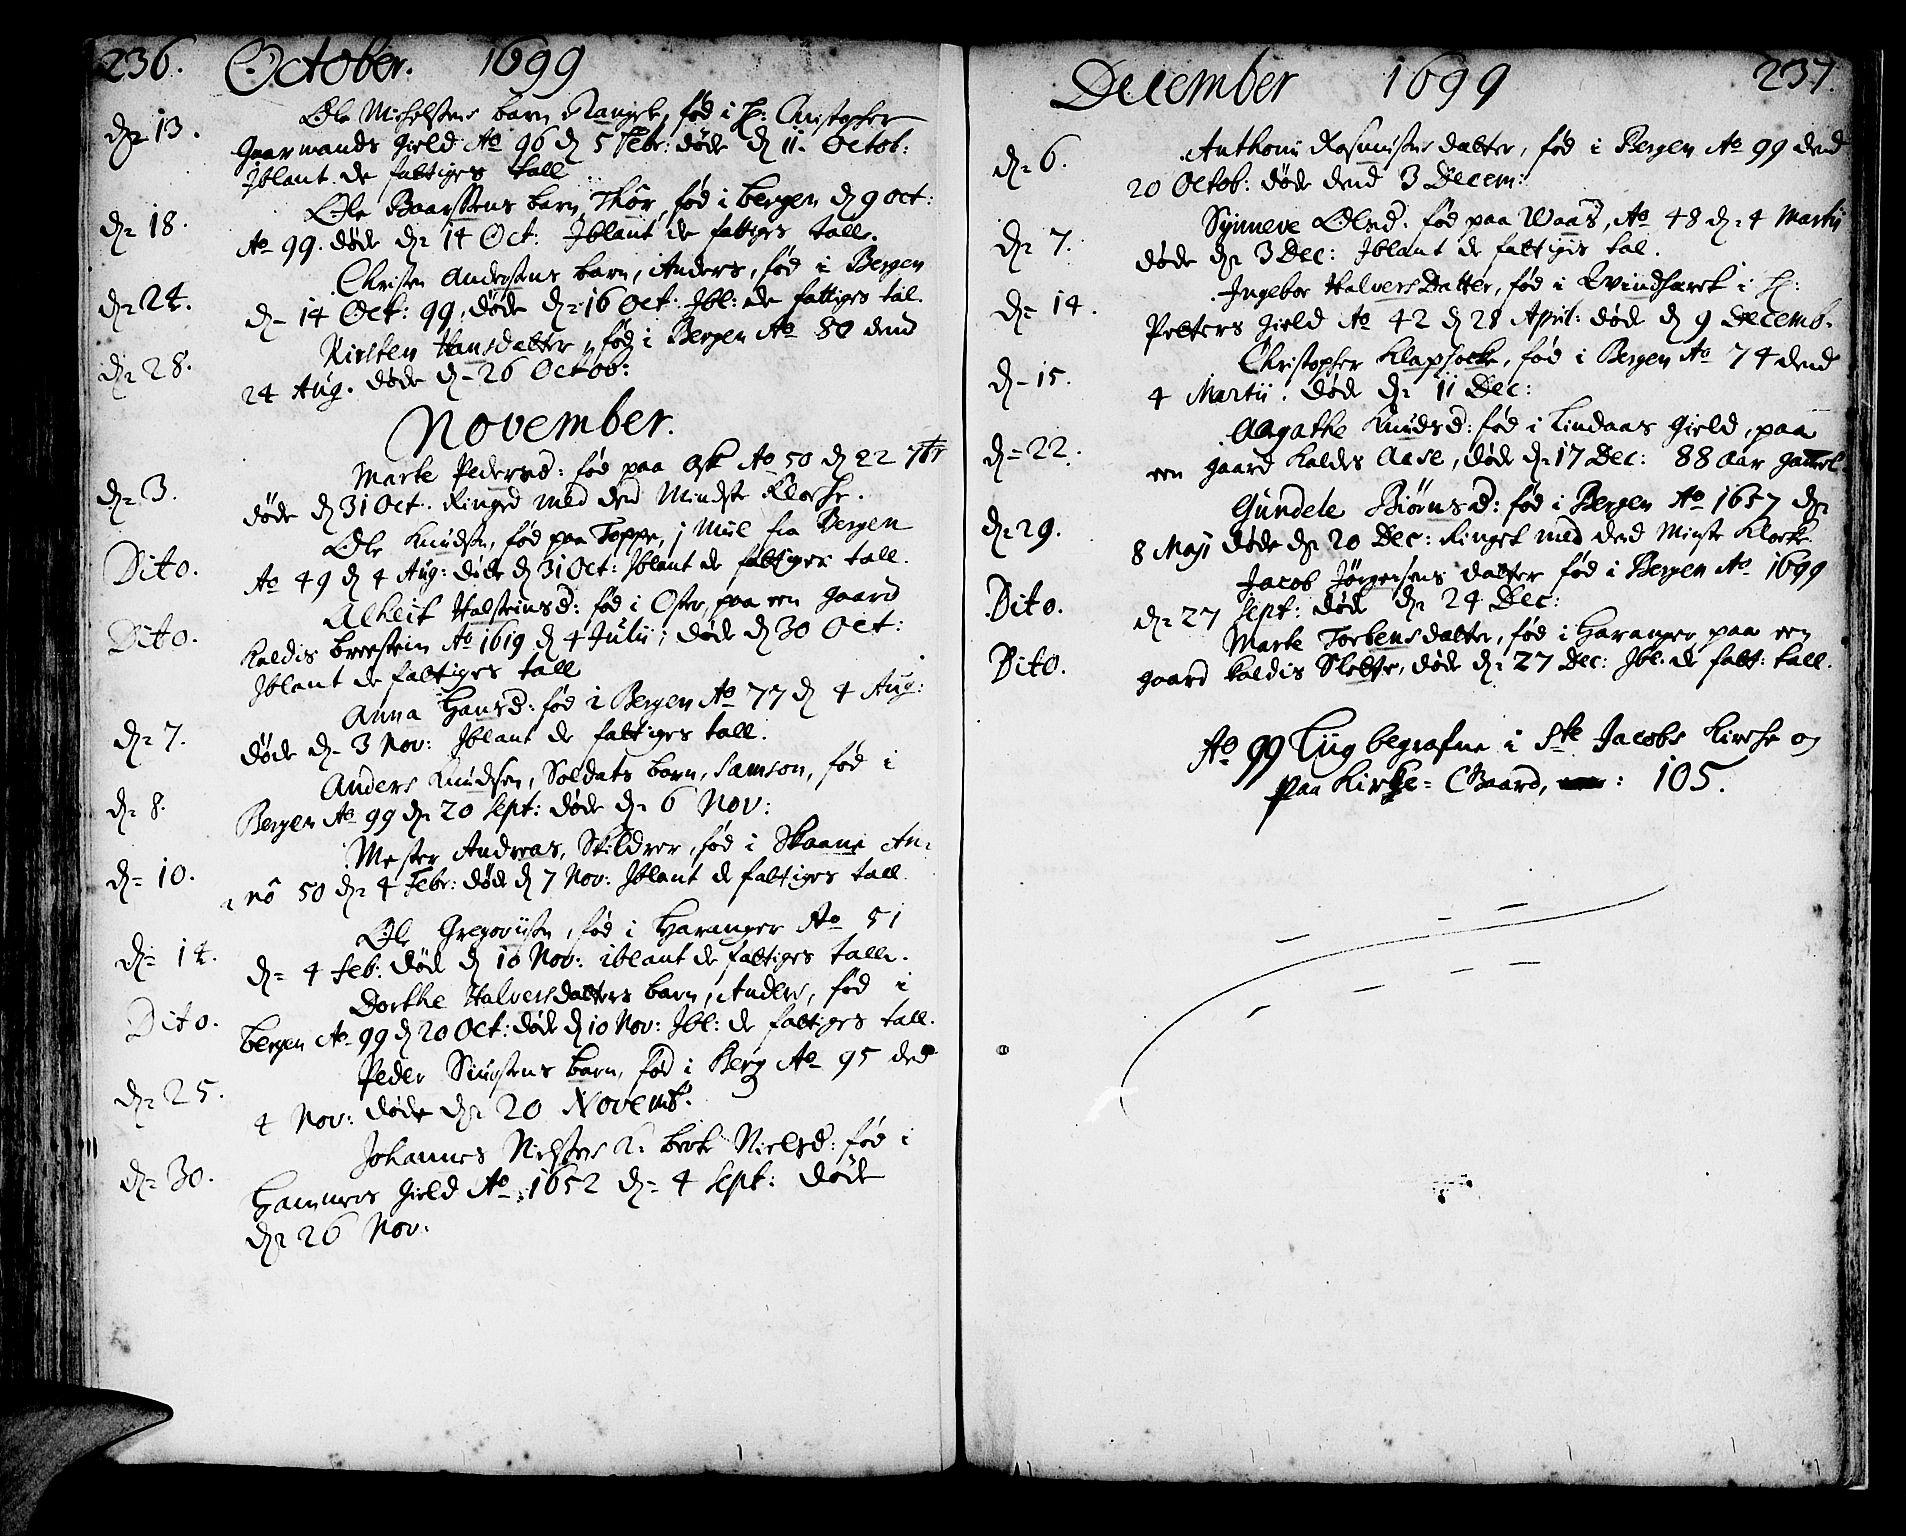 236. October. 1699
dn 13. Ole Michelsens barn, fød i H: Christopher
Gaarmands Gield Ao 96 d 5 Febr: døde d 11. Octob:
Jblant de fattiges tall
dn 18. Ole Baarssens barn, Thór, fød i bergen d 9 oct:
Ao 99. døde dn 14 Oct: Jblant de fattiges talle.
dn 24. Christen Andersens barn, Anders, fød i Bergen
d- 14 Oct: 99, døde dn 16 Oct: Jbl: de fattiges tal.
dn 28. Kirsten Hansdatter, fød i Bergen Ao 80 dend
24 Aug. døde d- 26 Octob:
November.
dn 3. Marte Pedersd: fød paa Ask Ao 50 d 22
døde d 31 Oct. Ringed med den Mindste Klocke.
Dito. Ole Knudsen, fød paa Toppe, j Miil fra Bergen
Ao 49 d 4 Aug: døde d 31 Oct: Jblant de fattiges tall.
Dito. Alheit Halsteinsd: fød i Oster, paa een gaard
kaldis breestein Ao 1619 d 4 Julii; døde d 30 Oct:
Jblant de fattiges tall
dn 7. Anna Hansd: fød i Bergen Ao 77 d 4 Aug:
døde d- 3 Nov: Jblant de fattiges tall.
dn 8. Anders Knudsen, Soldats barn, Samson, fød i
Bergen Ao 99 dn 20 Sept: døde dn 6 Nov:
dn 10. Mester Andreas, Skildrer, fød i Skaane An-
nô 50 dn 4 Febr: døde d 7 Nov: Jblant de fattiges tall.
dn 14. Ole Gregoriisen, fød i Haranger Ao 51
dn 4 Feb: døde d 10 Nov: iblant de fattiges talle.
Dito. Dorthe Halversdatters barn, Anders, fød i
bergen Ao 99 d 20 Oct: døde d 10 Nov: Jbl: de fattiges tall.
dn 25. Peder Simensens barn, fød i Berg Ao 95 ded
4 Nov: døde dn 20 Novemb:
dn 30. Johannes Nielsens K: berte Nielsd: fød i
Hammers Gield Ao 1652 dn 4 Sept: døde
dn 26 Nov:
December 1699 237.
dn 6. Anthoni Rasmusens datter, fød i Bergen Ao 99 dend
20 Octob: døde dend 3 Decem:
dn 7. Synneve Olsd: fød paa Waas, Ao 48 dn 4 Martii
døde dn 3 Dec: Jblant de fattigis tal.
dn 14. Ingebor HalversDatter, fød i Qvindherret i H:
Petters Gield Ao 42 d 28 April: døde d 9 Decemb.
d- 15. Christopher Klapsocke, fød i Bergen Ao 74 dend
4 Martii. døde dn 11 Dec:
dn 22. Aagathe Knudsd: fød i Lindaas Gield, paa
een gaard kaldes Aase, døde dn 17 Dec: 88 aar gammel.
dn 29. Gundele Biørnsd: fød i Bergen Ao 1657 dn
8 Maji døde dn 20 Dec: Ringet med dend Minste Klocke
Dito. Jacob Jørgensens datter fød i Bergen Ao 1699
dn 27 Sept: døde dn 24 Dec:
Dito. Marte Torbensdatter, fød i Haranger paa een
gaard kaldis Slette, døde dn 27 Dec: Jbl: de fatt: tall.
Ao 99 Liig begrafne i Ste Jacobs Kirche og
paa Kirke-Gaard, : 105.